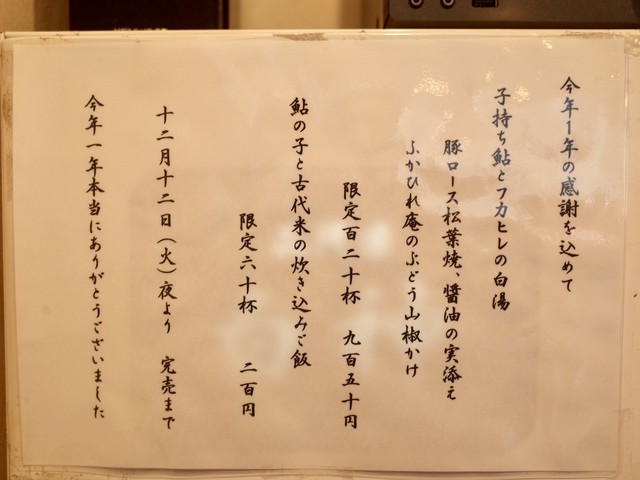 今年1年の感謝を込めて
子持ち鮎とフカヒレの白湯
豚ロース松葉焼、醤油の実添え
ふかひれ庵のぶどう山椒かけ
限定百二十杯 九百五十円
鮎の子と古代米の炊き込みご飯
限定六十杯 二百円
十二月十二日（火）夜より 完売まで
今年一年本当にありがとうございました